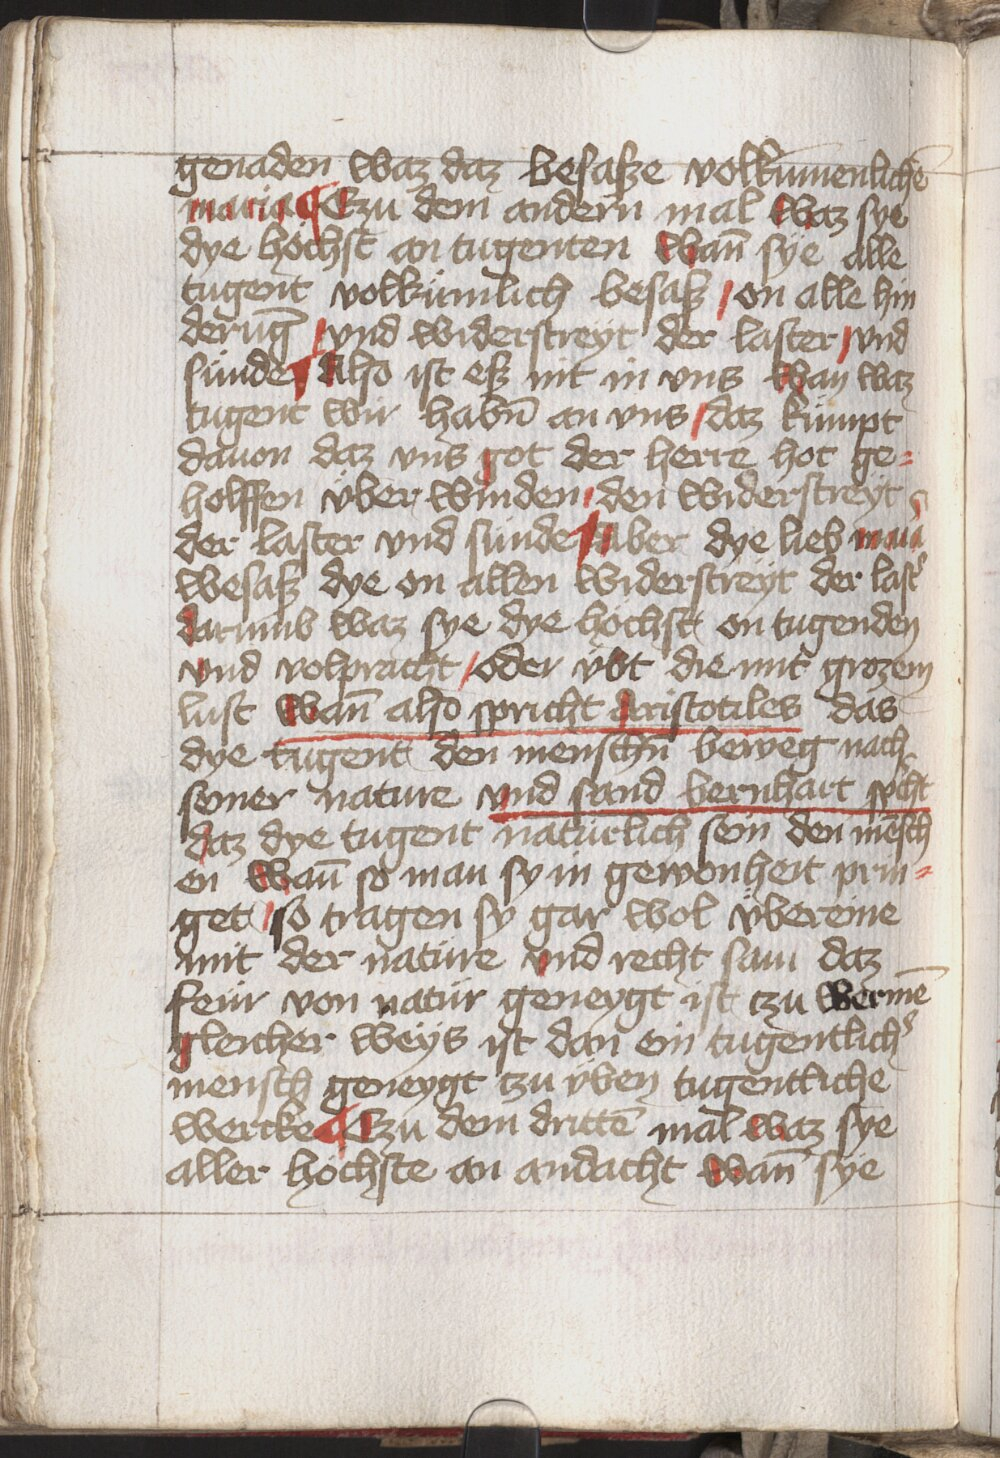 genaden waz daz besasze volkumenlichē
maria ¶ Czu dem andern mal waz sye
dye höchst an tugenten wañ sye alle
tugent volkümlich besasz / on alle hin
derūg / vnd widerstreyt der laster / vnd
sünde ¶ Also ist esz nit in vns wan waz
tugent wir habn̄ an vns / daz kumpt
dauon daz vns got der herre hot ge=
holffen über winden / den widerstreyt
der laster vnd sünde ¶ Aber dye lieb maria
wesasz dye on allen widerstreyt der last̛
darumb waz sye dye höchst on tugenden
vnd volpracht / oder übt die mit grozem
lust wañ also spricht Aristotiles das
dye tugent den menschn̄ beweg nach
seiner nature vnd sand bernhart sp̛cht
daz dye tugent natürlich sein den mēsch
en wañ so man sy in gewonheit prin=
get / so tragen sy gar wol übereine
mit der nature vnd recht sam daz
feür von natür geneygt ist czu wermē
gleicher weÿs ist dan ein tugentlich̛
mensch geneygt czu üben tugentliche
wercke ¶ Czu dem drittē mal waz sye
aller höchste an andacht wañ sye